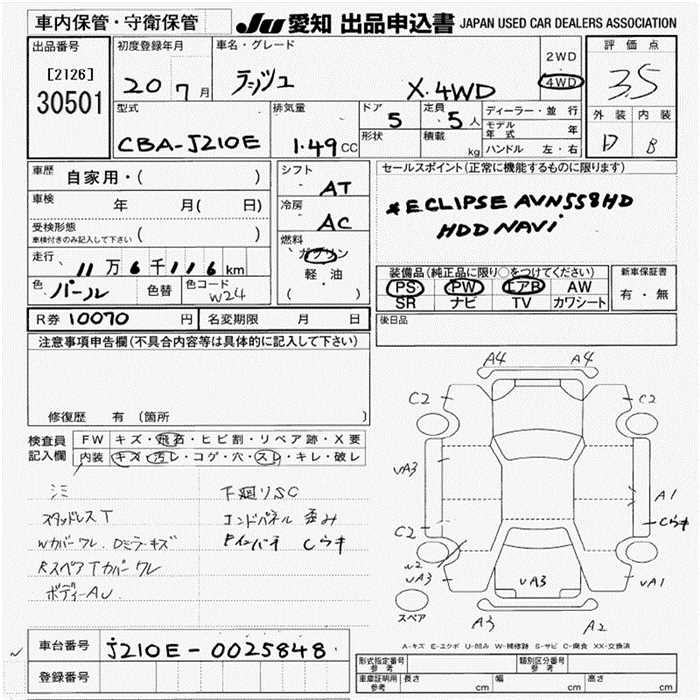 車内保管・守衛保管
JU 愛知 出品申込書 JAPAN USED CAR DEALERS ASSOCIATION
出品番号
[2126]
30501
初度登録年月
20 7月
車名・グレード
ラッシュ X.4WD
2WD
4WD
評価点
3.5
外装 内装
D B
型式
CBA-J210E
排気量
1.49CC
ドア
5
定員
5人
形状
積載
kg
ディーラー・並行
モデル年式 年
ハンドル 左・右
車歴
自家用・( )
車検
年 月( 日)
受検形態
車検付きのみ記入して下さい
( )
走行
11万6千116km
色 パール 色替
色コード
W24
シフト
AT
冷房
AC
燃料
ガソリン
軽・油
( )
セールスポイント(正常に機能するものに限ります)
*ECLIPSE AVN558HD
HDD NAVi
装備品(純正品に限り○をつけてください)
PS PW エアB AW
SR ナビ TV カワシート
新車保証書
有・無
R券 10070 円
名変期限 月 日
後日品
注意事項申告欄(不具合内容等は具体的に記入して下さい)
修復歴 有 (箇所
検査員
記入欄
FW キズ・飛石・ヒビ割・リペア跡・X要
内装 キズ・汚レ・コゲ・穴・スレ・キレ・破レ
シミ
下廻りSC
スタッドレスT
エンドパネル 歪み
Wカバーワレ.Dミラーキズ
Cウキ
RスペアTカバーワレ
ボディーAU
A4 A4
C2 C2
UA3
A1
Cウキ
C2
W2
UA3 UA3 UA1
スペア
A3 A2
A-キズ E-エクボ U-凹み W-補修跡 S-サビ C-腐食 XX-交換済
車台番号
J210E-0025848
登録番号
形式指定番号
参考
類別区分番号
参考
車庫証明用
参考
長さ cm 幅 cm 高さ cm